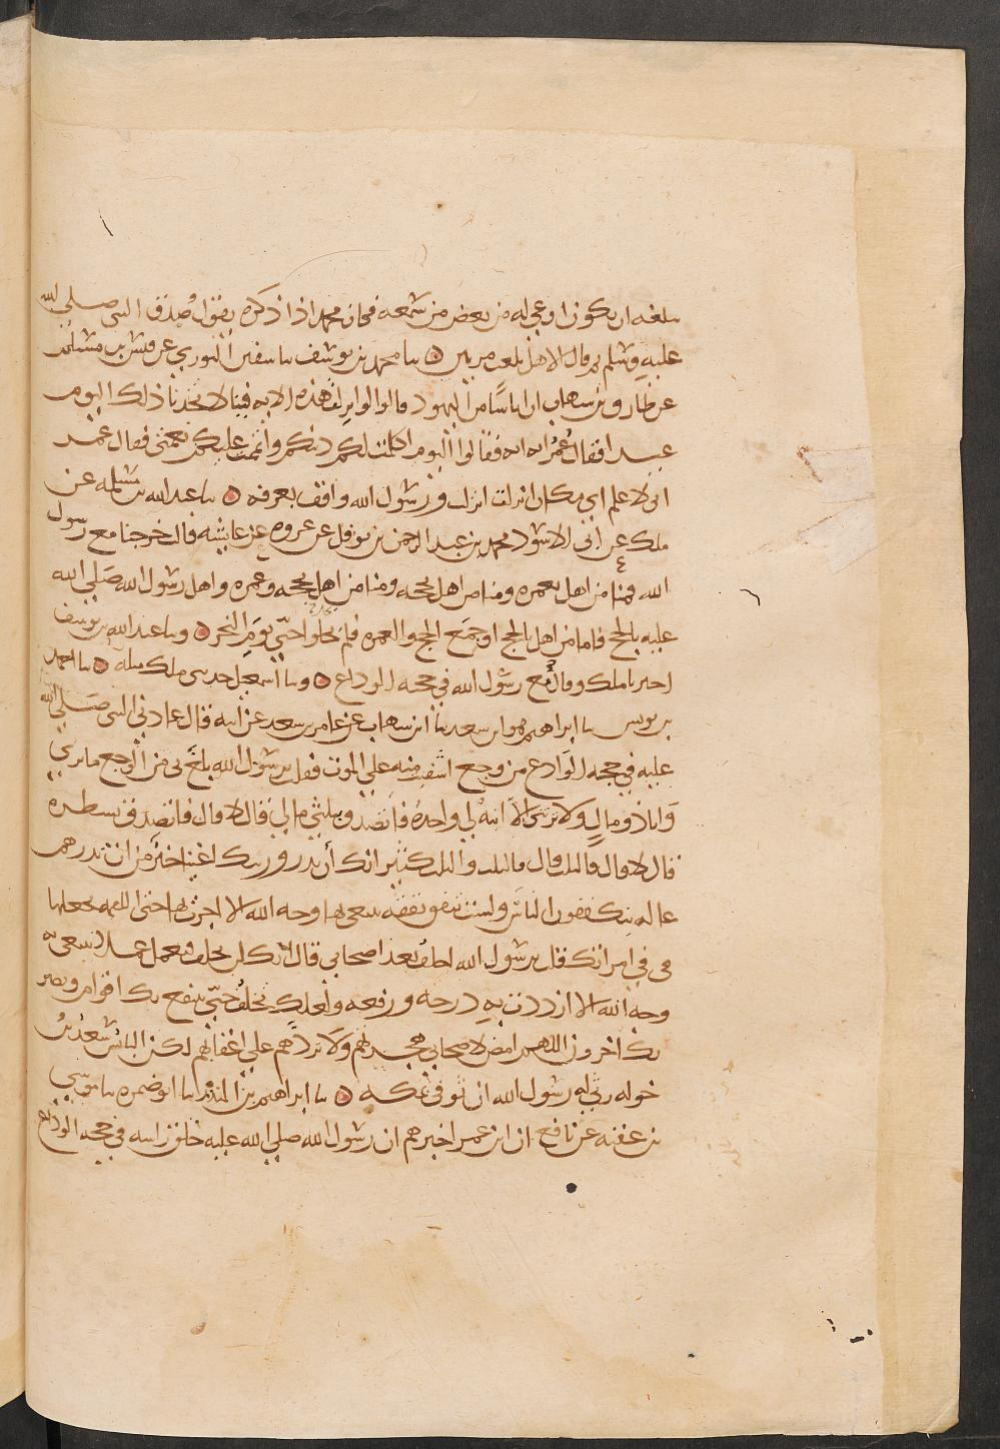 يبلغه ان يكون اوعى له من بعض من سمعه فكان محمد اذا ذكره يقول صدق النبي صلى الله
عليه وسلم ثم قال الا هل بلغت مرتين ۞ نا محمد بن يوسف نا سفين الثوري عن قيس بن مسلم
عن طارق بن شهاب ان اناسا من اليهود قالوا لو نزلت هذه الاية فينا لاتخذنا ذلك اليوم
عيدا فقال عمر اية اية فقالوا اليوم اكملت لكم دينكم واتممت عليكم نعمتي فقال عمر
اني لا علم اي مكان انزلت انزلت ورسول الله واقف بعرفة ۞ نا عبد الله بن مسلمة عن
ملك عن ابي الاسود محمد بن عبد الرحمن بن نوفل عن عروة عن عايشة قالت خرجنا مع رسول
الله فمنا من اهل بعمرة ومنا من اهل بحجة ومنا من اهل بحجة وعمرة واهل رسول الله صلى الله
عليه بالحج فاما من اهل بالحج او جمع الحج والعمرة فلم يحلوا حتى يوم النحر ۞ ونا عبد الله بن يوسف
اخبرنا ملك وقال مع رسول الله في حجة الوداع ۞ ونا اسمعيل حدثني ملك مثله ۞ نا احمد
بن يونس نا ابراهيم هو ابن سعد نا ابن شهاب عن عامر بن سعد عن ابيه قال عادني النبي صلى الله
عليه في حجة الوادع من وجع اشفيت منه على الموت فقلت يرسول الله بلغ بي من الوجع ما ترى
وانا ذو مال ولا يرثني الا ابنة لي واحدة فاتصدق بثلثي مالي قال لا قال فاتصدق بشطره
قال لا قال فالثلث قال فالثلث والثلث كثير انك أن تذر ورثتك اغنيا خير من ان تذرهم
عالة يتكففون الناس ولست تنفق نفقة تبتغي بها وجه الله الا اجرت بها حتى اللقمة تجعلها
في في امراتك قلت يرسول الله اخلف بعد اصحابي قال انك لن تخلف فتعمل عملا تبتغي به
وجه الله الا ازددت به درجة ورفعة ولعلك تخلف حتى ينتفع بك اقوام ويضر
بك اخرون اللهم امض لاصحابي هجرتهم ولا تردهم على اعقابهم لكن البائس سعد بن
خوله رثى له رسول الله ان توفي بمكة ۞ نا ابراهيم بن المنذر نا ابو ضمرة نا موسى
بن عقبة عن نافع ان ابن عمر اخبرهم ان رسول الله صلى الله عليه حلق راسه في حجة الوداع